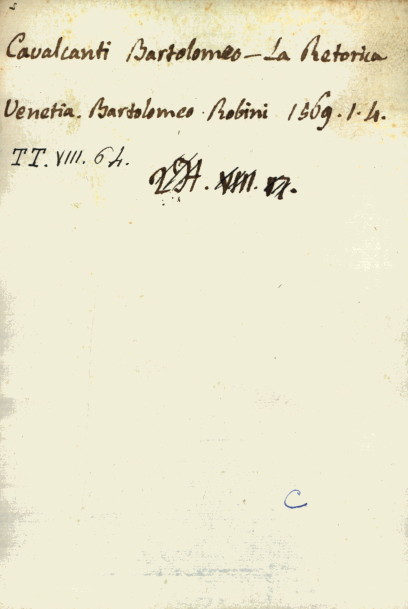 Cavalcanti Bartolomeo — La Retorica
Venetia. Bartolomeo Robini 1569. 1. 4.
TT. VIII. 64.
C